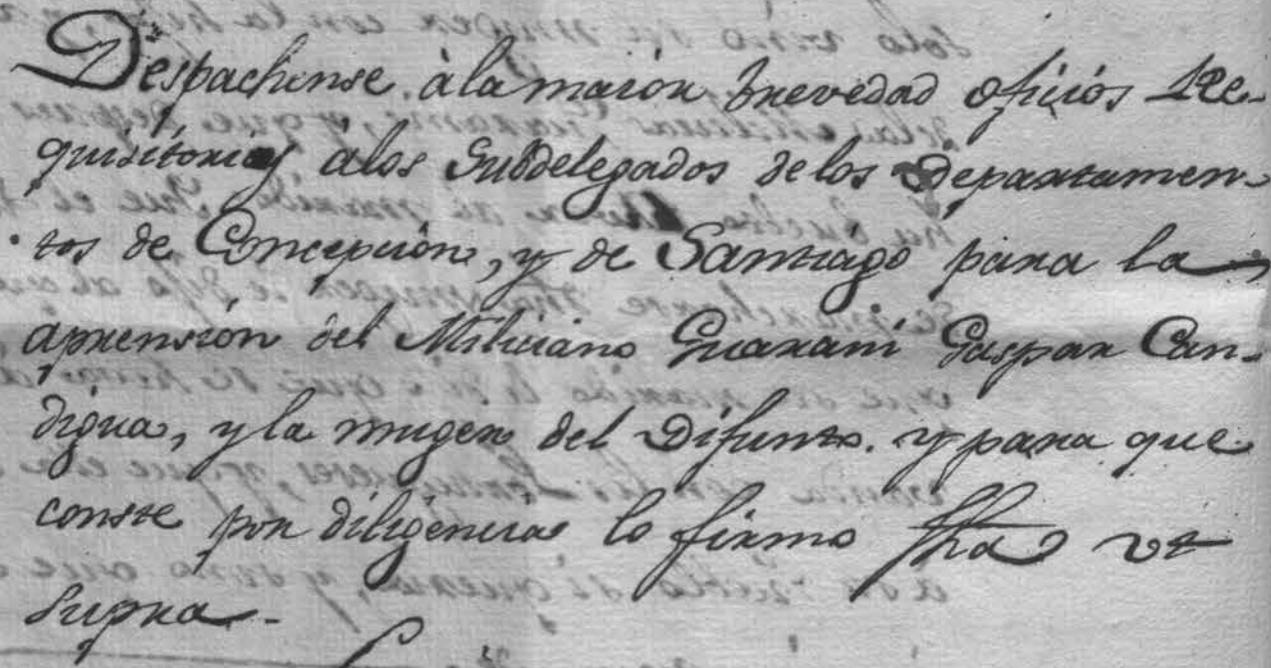 Despachense. à la maior brevedad oficios Re-
quisitorios a los Subdelegados de los Departamen-
tos de Concepcion, y de Santiago para la
aprension del Miliciano Guarani Gaspar Can-
digua, y la muger del Difunto. y para que
conste por diligencia lo firmo fha vt
supra.-